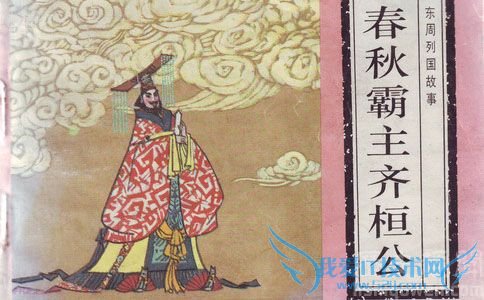 东周列国故事
春秋霸主齐桓公
我爱IT技术网